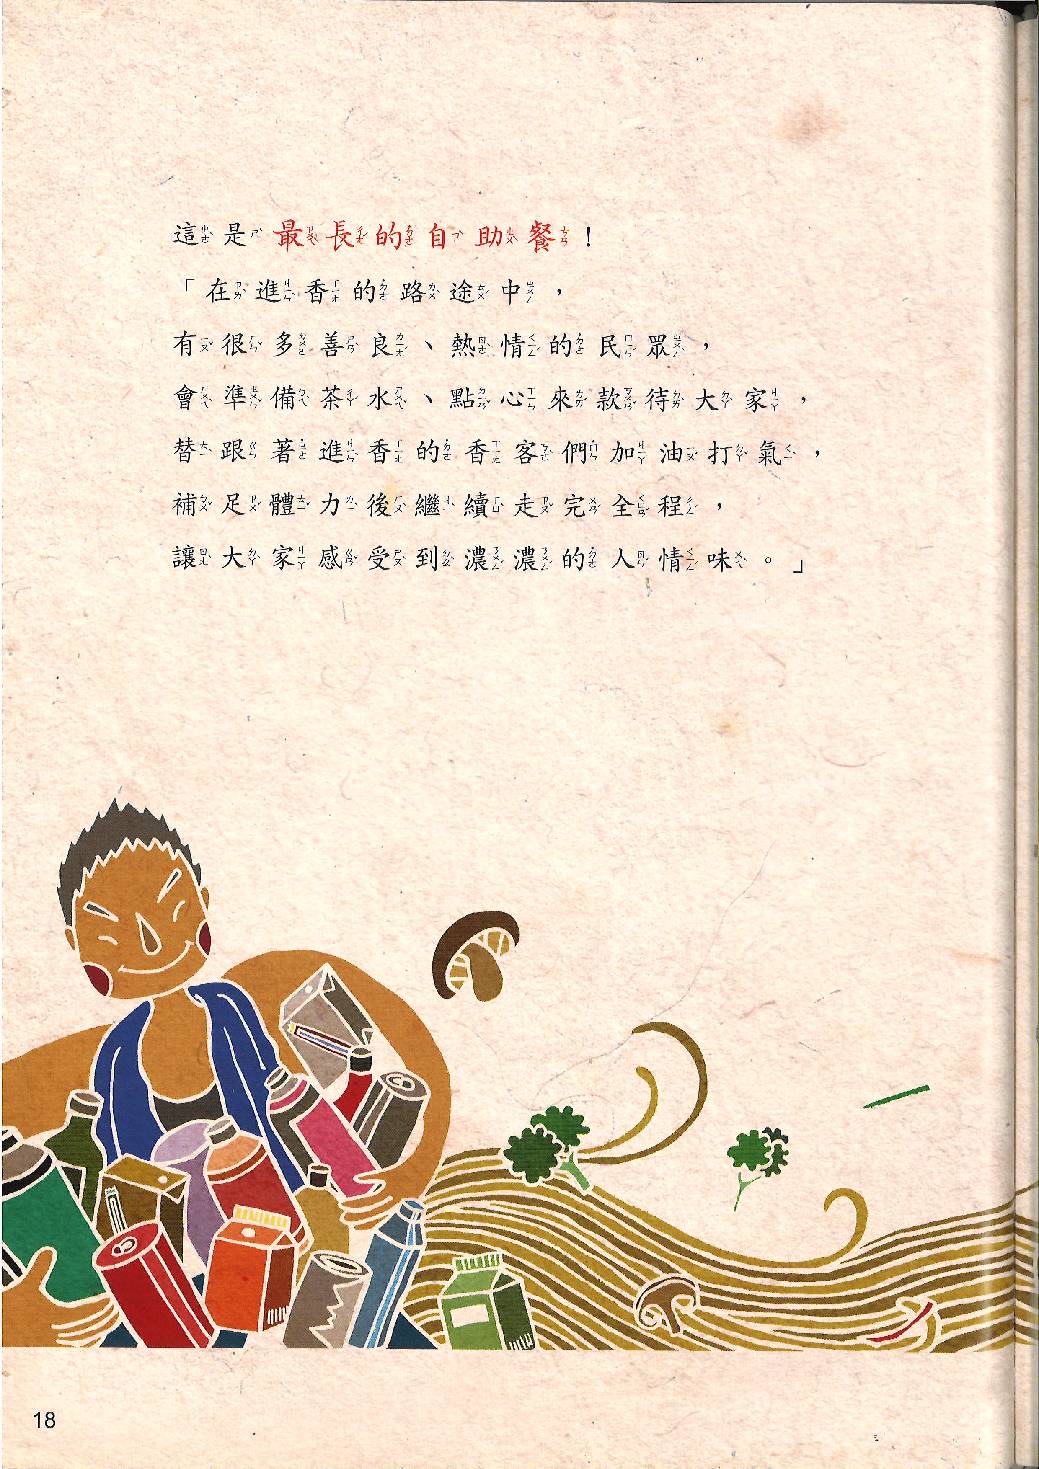 這是最長的自助餐！
「在進香的路途中，
有很多善良、熱情的民眾，
會準備茶水、點心來款待大家，
替跟著進香的香客們加油打氣，
補足體力後繼續走完全程，
讓大家感受到濃濃的人情味。」
18